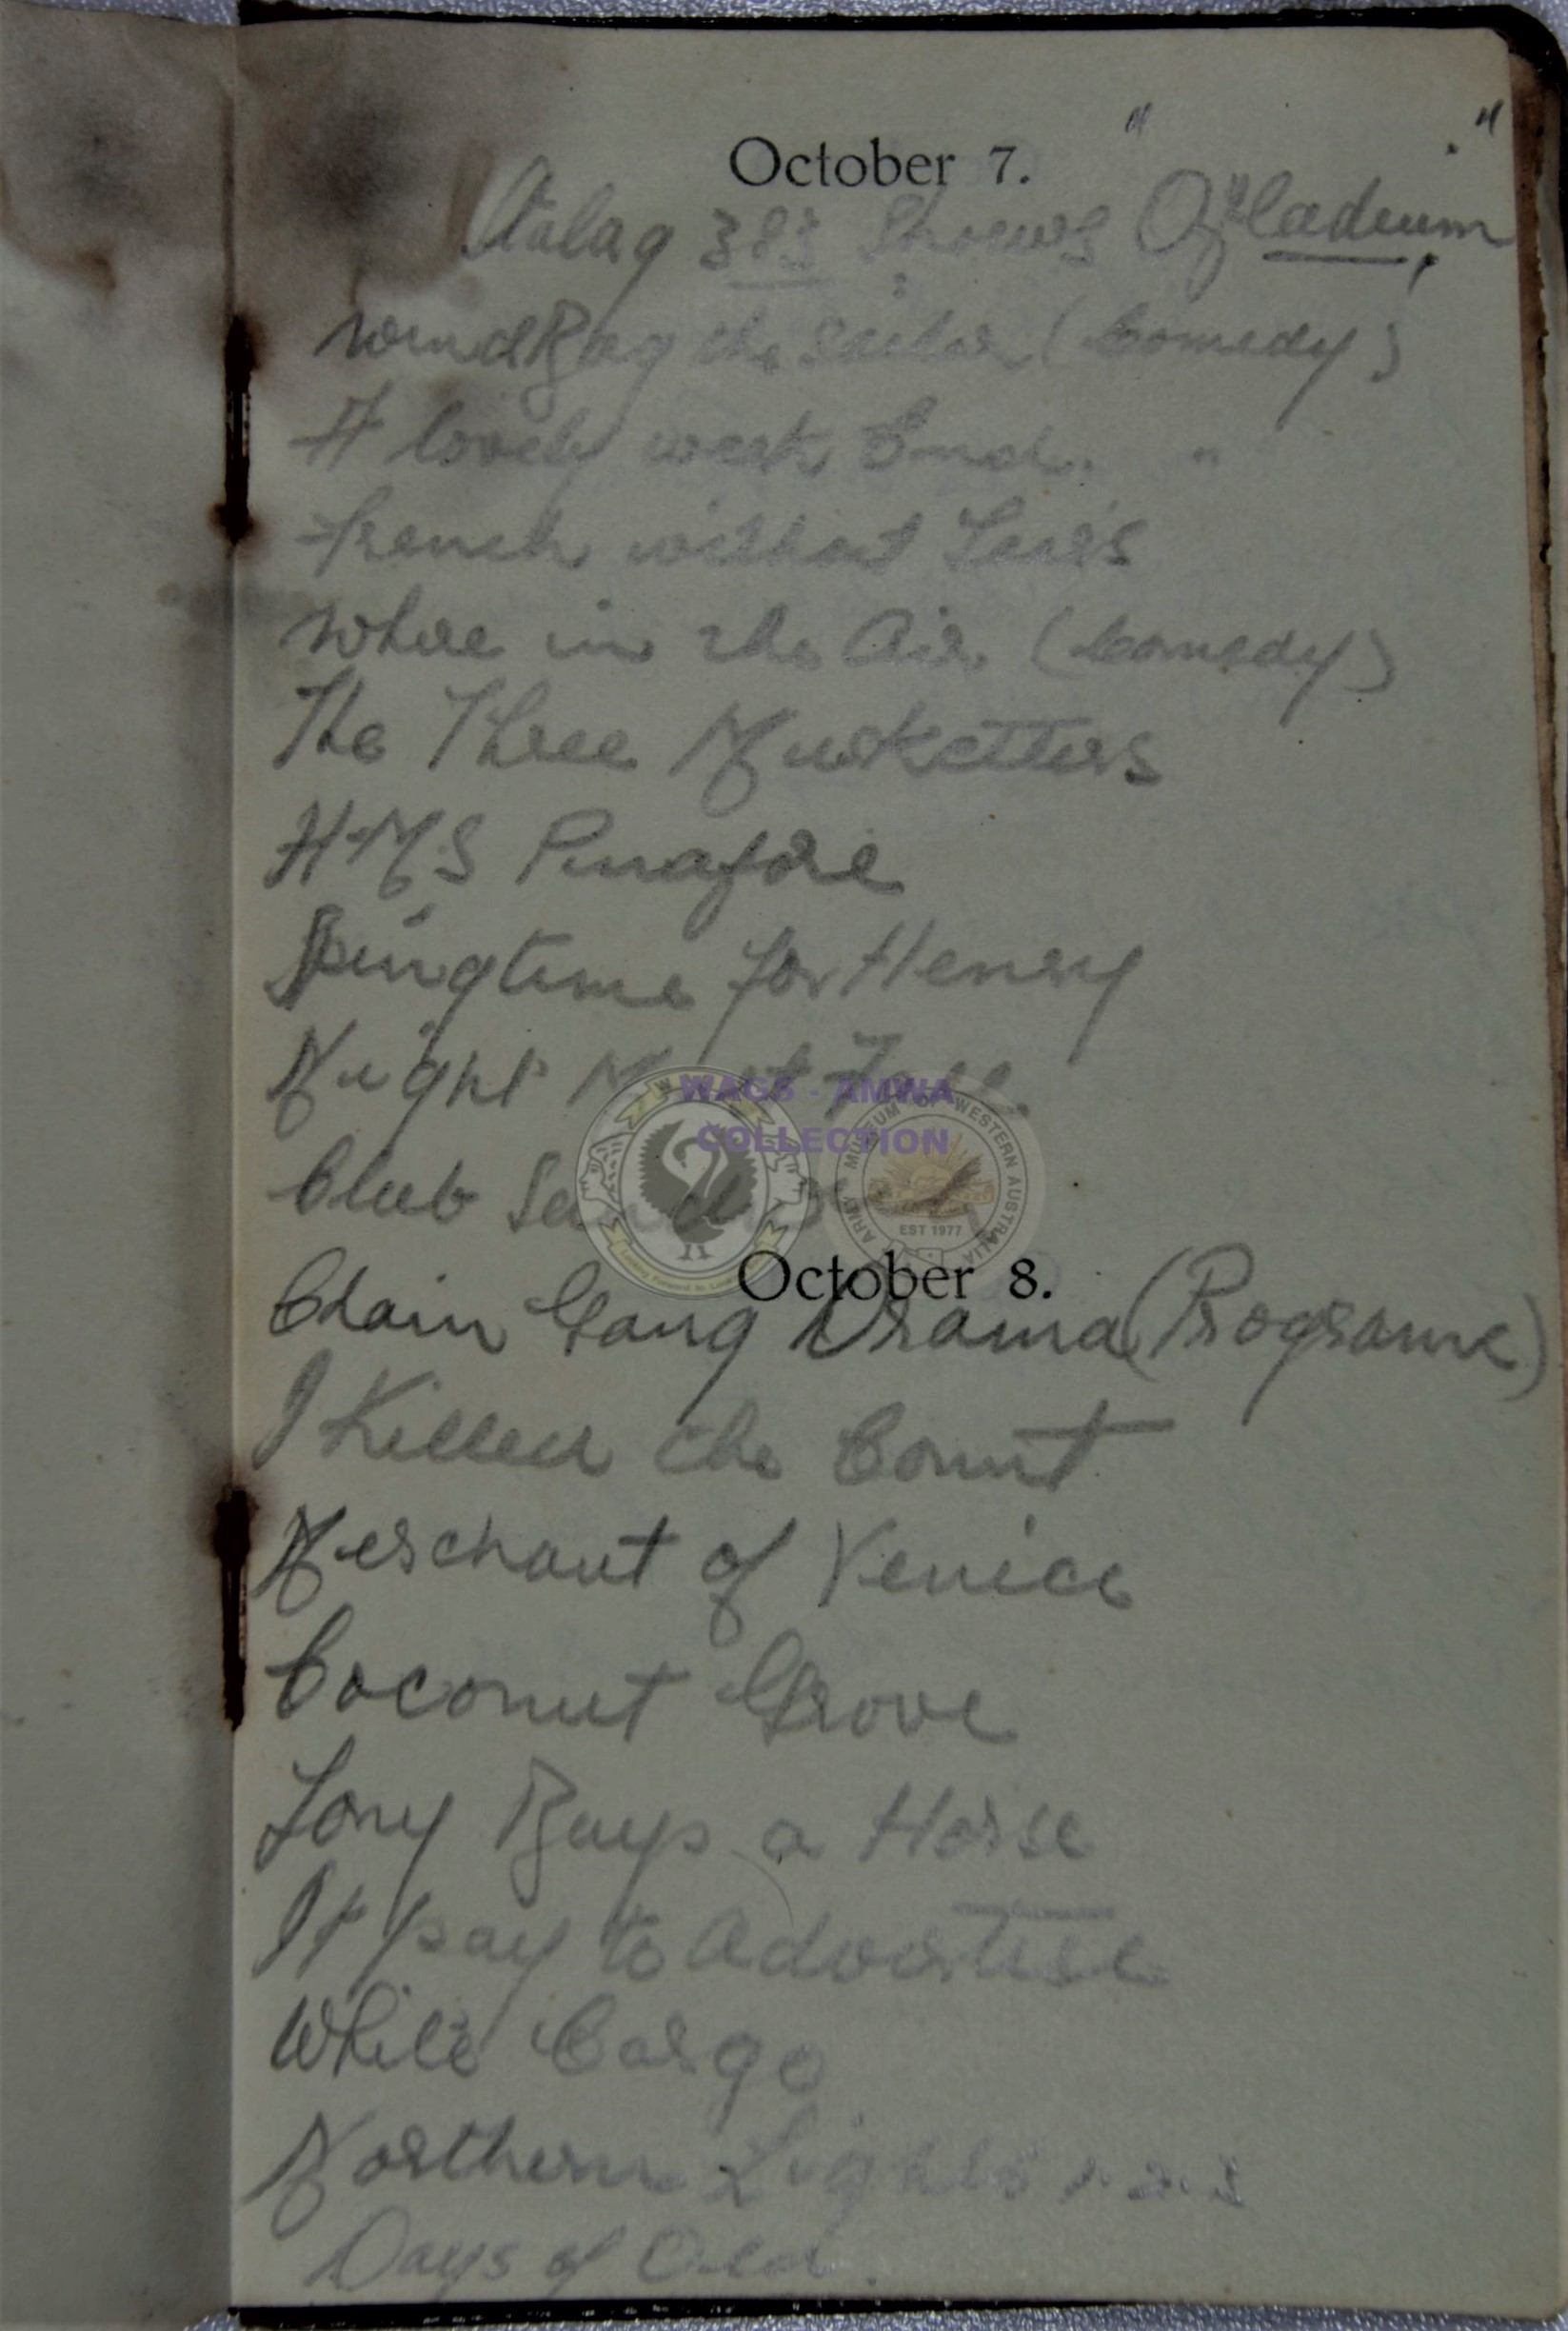 October 7.
Stalag 383 Shows "Ofladium"
WindBag the Sailor (Comedy)
A lovely week End. "
French without Tears
Where in the Air (Comedy)
The Three Musketters
H.M.S Pinafore
Springtime for Henry
Night Must Fall.
WAGS - AMWA
COLLECTION
ARMY MUSEUM OF WESTERN AUSTRALIA
EST 1977
Club
October 8.
Chain Gang Drama (Programe)
I Killed the Count
Merchant of Venice
Coconut Grove
Tony Buys a Horse
It pay to advertise
White Cargo
Northern Lights 1. 2. 3
Days of Old.